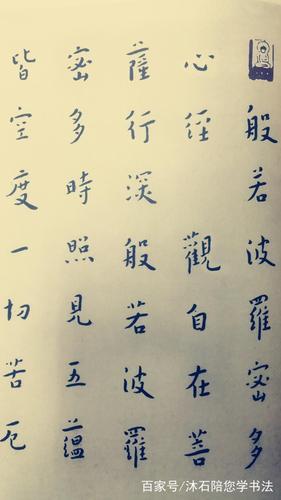 般若波羅蜜多
心經 觀自在菩
薩行深般若波羅
蜜多時照見五蘊
皆空度一切苦厄
百家号/沐石陪您学书法